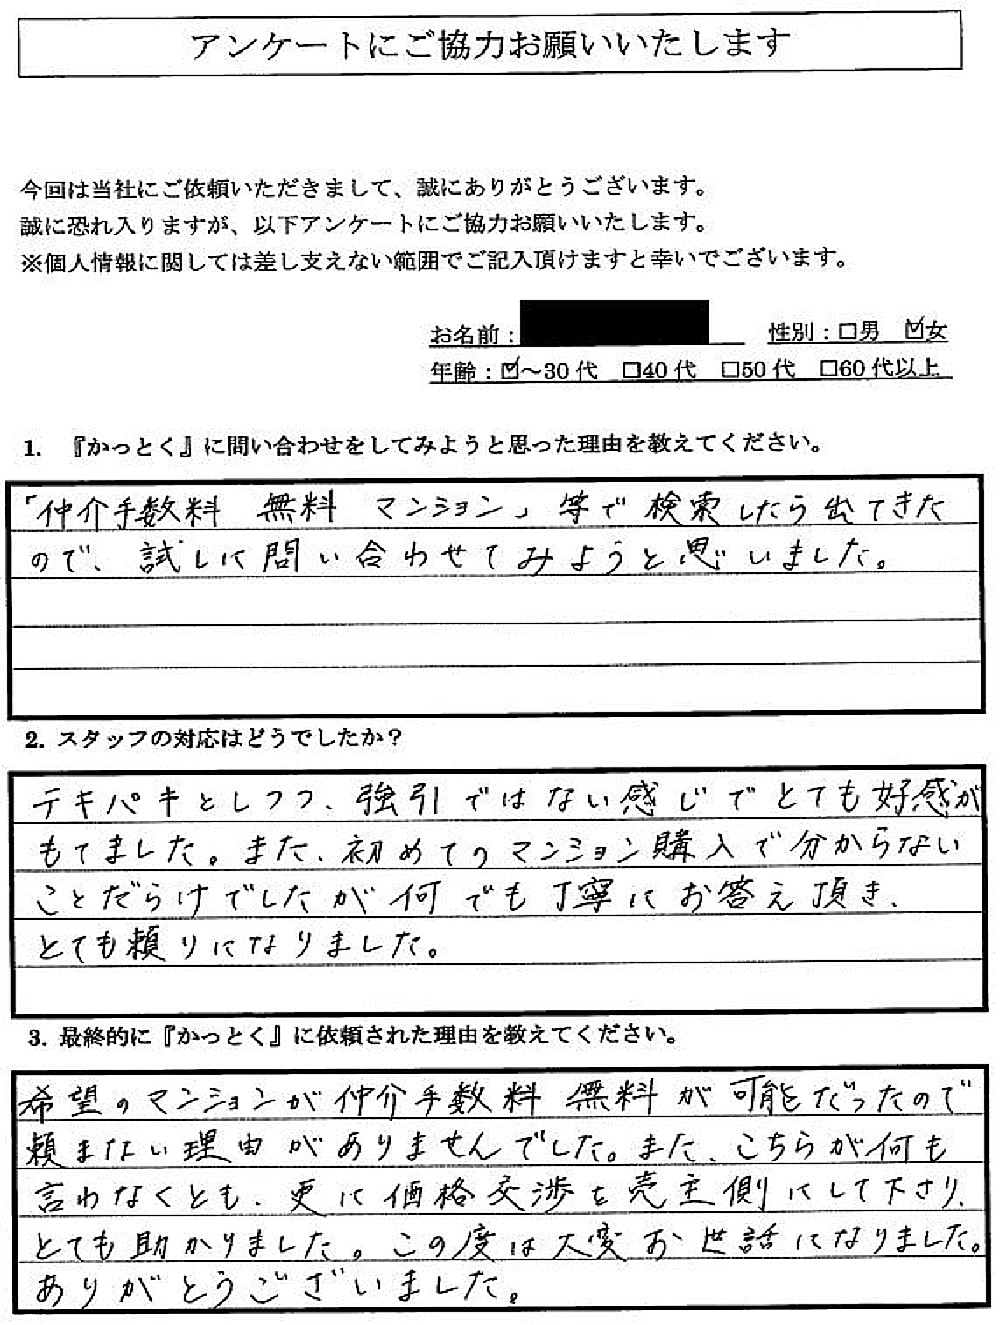 アンケートにご協力お願いいたします
今回は当社にご依頼いただきまして、誠にありがとうございます。
誠に恐れ入りますが、以下アンケートにご協力お願いいたします。
※個人情報に関しては差し支えない範囲でご記入頂けますと幸いでございます。
お名前： 性別：□男 ☑女
年齢：☑～30代 □40代 □50代 □60代以上
1. 『かっとく』に問い合わせをしてみようと思った理由を教えてください。
「仲介手数料 無料 マンション」等で検索したら出てきた
ので、試しに問い合わせてみようと思いました。
2. スタッフの対応はどうでしたか？
テキパキとしつつ、強引ではない感じでとても好感が
もてました。また、初めてのマンション購入で分からない
ことだらけでしたが何でも丁寧にお答え頂き、
とても頼りになりました。
3. 最終的に『かっとく』に依頼された理由を教えてください。
希望のマンションが仲介手数料 無料が可能だったので
頼まない理由がありませんでした。また、こちらが何も
言わなくとも、更に価格交渉を売主側にして下さり、
とても助かりました。この度は大変お世話になりました。
ありがとうございました。